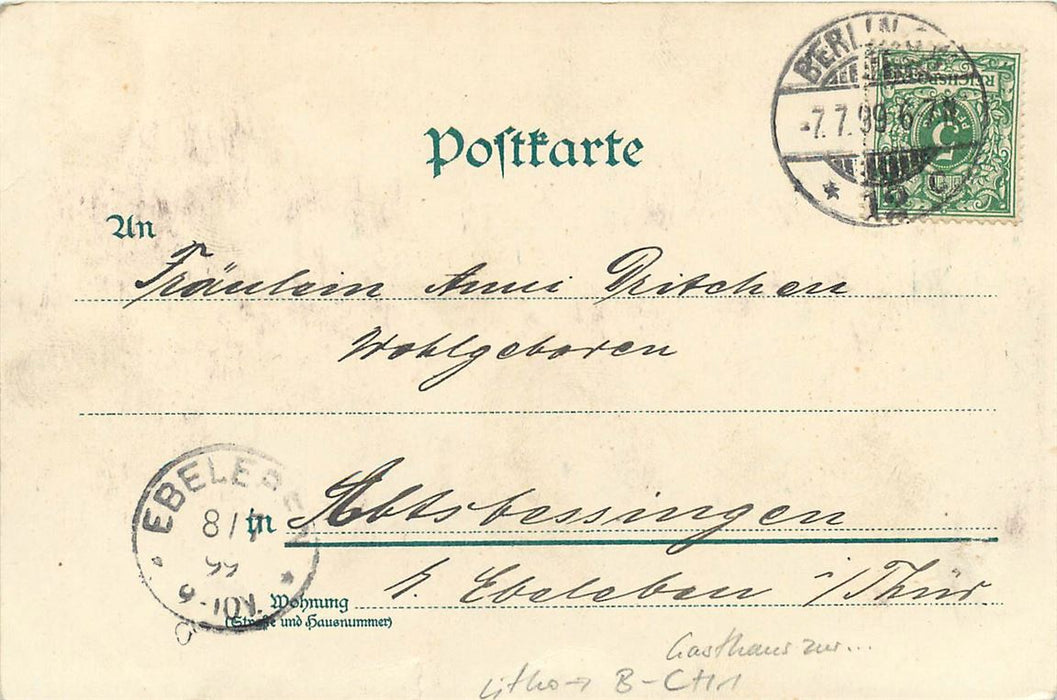 BERLIN
-7.7.99 6-7N
12
REICHSPOST
5
Postkarte
An
Fräulein Anni Pritchen
Wohlgeboren
EBELEBEN
8/7
99
in Abtsbessingen
b. Ebeleben i/Thür
Wohnung
(Straße und Hausnummer)
Gasthaus zur...
Litho →